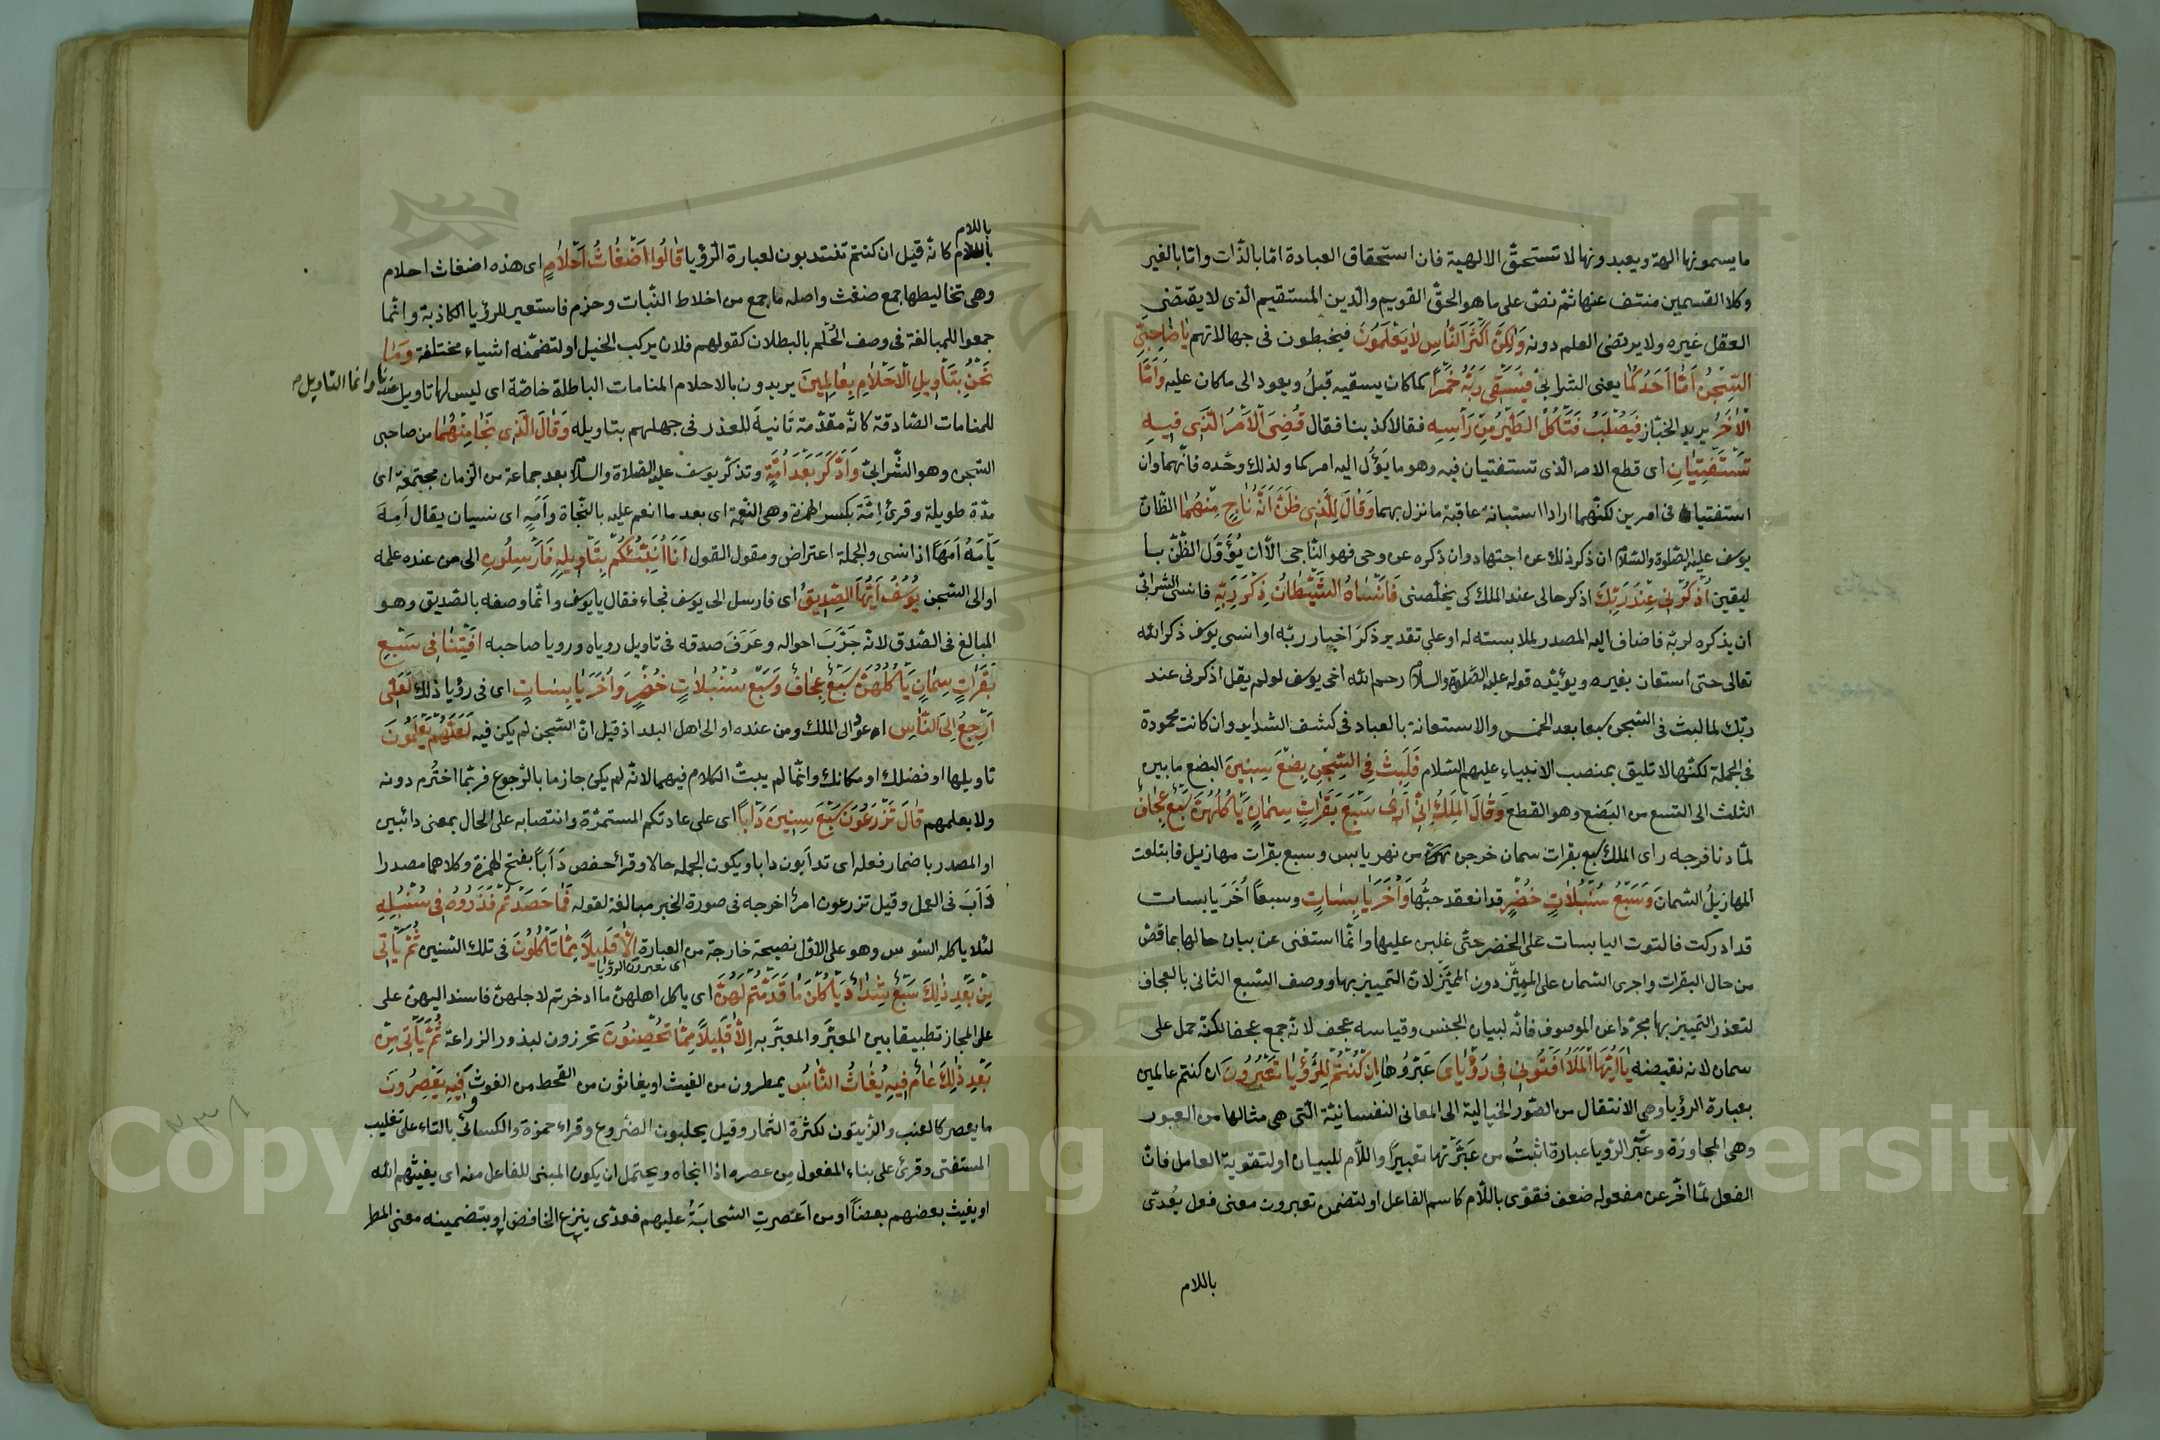 ما يسمونها الهة ويعبدونها لا تستحقّ الالهية فان استحقاق العبادة امّا بالذّات وامّا بالغير
وكلا القسمين منتف عنها ثمّ نصّ على ما هو الحقّ القويم والدّين المستقيم الّذى لا يقتضى
العقل غيره ولا يرتضى العلم دونه وَلٰكِنَّ اَكْثَرَ النَّاسِ لَا يَعْلَمُونَ فيخبطون فى جهالاتهم يَا صَاحِبَىِ
السِّجْنِ اَمَّا اَحَدُكُمَا يعنى الشرابىّ فَيَسْقِى رَبَّهُ خَمْرًا كما كان يسقيه قبلُ ويعود الى ما كان عليه وَاَمَّا
الْاٰخَرُ يريد الخبّاز فَيُصْلَبُ فَتَأْكُلُ الطَّيْرُ مِنْ رَأْسِهِ فقالا كذبنا فقال قُضِىَ الْاَمْرُ الَّذِى فِيهِ
تَسْتَفْتِيَانِ اى قطع الامر الّذى تستفتيان فيه وهو ما يؤل اليه امركما ولذلك وحّده فانّهما وان
استفتيا فى امرين لكنّهما ارادا استبانة عاقبة ما نزل بهما وَقَالَ لِلَّذِى ظَنَّ اَنَّهُ نَاجٍ مِنْهُمَا الظّانّ
يوسف عليه الصّلوة والسّلام ان ذكر ذلك عن اجتهاد وان ذكره عن وحى فهو النّاجى الّا ان يُؤَوَّل الظّنّ با
ليقين اُذْكُرْنِى عِنْدَ رَبِّكَ اذكر حالى عند الملك كى يخلّصنى فَاَنْسَاهُ الشَّيْطَانُ ذِكْرَ رَبِّهِ فانسى الشرابىّ
ان يذكره لربّه فاضاف اليه المصدر لملابسته له او على تقدير ذكرَ اخبار ربّه او انسى يوسف ذكر الله
تعالى حتى استعان بغيره ويؤيّده قوله عليه الصّلوة والسّلام رحم الله اخى يوسف لو لم يقل اذكرنى عند
ربّك لما لبث فى السّجن سبعا بعد الخمس والاستعانة بالعباد فى كشف الشدايد وان كانت محمودة
فى الجملة لكنّها لا تليق بمنصب الانبياء عليهم السّلام فَلَبِثَ فِى السِّجْنِ بِضْعَ سِنِينَ البضع ما بين
الثلث الى التسع من البَضع وهو القطع وَقَالَ الْمَلِكُ اِنِّى اَرٰى سَبْعَ بَقَرَاتٍ سِمَانٍ يَأْكُلُهُنَّ سَبْعٌ عِجَافٌ
لمّا دنا فرجه راى الملك سبع بقرات سمان خرجن من نهر يابس وسبع بقرات مهازيل فابتلعت
المهازيلُ السّمانَ وَسَبْعَ سُنْبُلَاتٍ خُضْرٍ قد انعقد حبّها وَاُخَرَ يَابِسَاتٍ وسبعًا اُخَرَ يابسات
قد ادركت فالتوت اليابسات على الخضر حتّى غلبن عليها وانّما استغنى عن بيان حالها بما قصّ
من حال البقرات واجرى السّمان على المميّز دون المميَّز لانّ التمييز بها ووصف السّبع الثانى بالعجاف
لتعذر التمييز بها مجرّدا عن الموصوف فانّه لبيان الجنس وقياسه عجف لانّه جمع عجفا لكنّه حمل على
سمان لانه نقيضه يَا اَيُّهَا الْمَلَأُ اَفْتُونِى فِى رُؤْيَاىَ عَبّروها اِنْ كُنْتُمْ لِلرُّؤْيَا تَعْبُرُونَ ان كنتم عالمين
بعبارة الرؤيا وهى الانتقال من الصّور الخياليّة الى المعانى النفسانيّة الّتى هى مثالها من العبور
وهى المجاوزة وعبّر الرؤيا عبارة اثبتُ من عبّرتها تعبيرًا واللّام للبيان او لتقوية العامل فانّ
الفعل لمّا اخّر عن مفعوله ضعف فقوّى باللّام كاسم الفاعل او لتضمن تعبرون معنى فعل يُعدّى
باللام
باللام
باللام كانّه قيل ان كنتم تنتدبون لعبارة الرؤيا قَالُوا اَضْغَاثُ اَحْلَامٍ اى هذه اضغاث احلام
وهى تخاليطها جمع ضغث واصله ما جمع من اخلاط النّبات وحزم فاستعير للرؤيا الكاذبة وانّما
جمعوا للمبالغة فى وصف الحُلم بالبطلان كقولهم فلان يركب الخيل او لتضمّنه اشياء مختلفة وَمَا
نَحْنُ بِتَأْوِيلِ الْاَحْلَامِ بِعَالِمِينَ يريدون بالاحلام المنامات الباطلة خاصّة اى ليس لها تاويل عندنا وانما التاويل
للمنامات الصّادقة كانّه مقدّمة ثانيةً للعذر فى جهلهم بتاويله وَقَالَ الَّذِى نَجَا مِنْهُمَا من صاحبى
السّجن وهو الشّرابىّ وَادَّكَرَ بَعْدَ اُمَّةٍ وتذكّر يوسف عليه الصّلاة والسّلام بعد جماعة من الزّمان مجتمعة اى
مدّة طويلة وقرئ اِمَّة بكسر الهمزة وهى النّعمة اى بعد ما انعم عليه بالنّجاة واَمَهٍ اى نسيان يقال اَمِهَ
يَأْمَهُ اَمَهًا اذا نسى والجملة اعتراض ومقول القول اَنَا اُنَبِّئُكُمْ بِتَأْوِيلِهِ فَاَرْسِلُونِ الى من عنده علمه
او الى السّجن يُوسُفُ اَيُّهَا الصِّدِّيقُ اى فارسل الى يوسف فجاء فقال يا يوسف وانّما وصفه بالصّديق وهو
المبالغ فى الصّدق لانّه جرّبَ احواله وعرَف صدقه فى تاويل روياه ورويا صاحبه اَفْتِنَا فِى سَبْعِ
بَقَرَاتٍ سِمَانٍ يَأْكُلُهُنَّ سَبْعٌ عِجَافٌ وَسَبْعِ سُنْبُلَاتٍ خُضْرٍ وَاُخَرَ يَابِسَاتٍ اى فى رؤيا ذلك لَعَلِّى
اَرْجِعُ اِلَى النَّاسِ اعود الى الملك ومن عنده او الى اهل البلد اذ قيل انّ السّجن لم يكن فيه لَعَلَّهُمْ يَعْلَمُونَ
تاويلها او فضلك ومكانك وانّما لم يبتّ الكلام فيهما لانّه لم يكن جازما بالرّجوع فربّما اختُرم دونه
ولا بعلمهم قَالَ تَزْرَعُونَ سَبْعَ سِنِينَ دَأْبًا اى على عادتكم المستمرّة وانتصابه على الحال بمعنى دائبين
او المصدر باضمار فعله اى تدأبون دابا ويكون الجمله حالا وقرأ حفص دَأَبًا بفتح الهمزة وكلاهما مصدرا
دَأَبَ فى العمل وقيل تزرعون امرٌ اخرجه فى صورة الخبر مبالغة لقوله فَمَا حَصَدْتُمْ فَذَرُوهُ فِى سُنْبُلِهِ
لئلا ياكله السّوس وهو على الاوّل نصيحة خارجة من العبارة اِلَّا قَلِيلًا مِمَّا تَأْكُلُونَ فى تلك السّنين ثُمَّ يَأْتِى
اى تعبرون الرؤيا
مِنْ بَعْدِ ذٰلِكَ سَبْعٌ شِدَادٌ يَأْكُلْنَ مَا قَدَّمْتُمْ لَهُنَّ اى ياكل اهلهنّ ما ادخرتم لاجلهنّ فاسند اليهنّ على
على المجاز تطبيقا بين المعبَّر والمعبَّر به اِلَّا قَلِيلًا مِمَّا تُحْصِنُونَ تحرزون لبذور الزراعة ثُمَّ يَأْتِى مِنْ
بَعْدِ ذٰلِكَ عَامٌ فِيهِ يُغَاثُ النَّاسُ يمطرون من الغيث او يغاثون من القحط من الغوث وَفِيهِ يَعْصِرُونَ
ما يعصر كالعنب والزّيتون لكثرة الثّمار وقيل يحلبون الضّروع وقراء حمزة والكسائىّ بالتاء على تغليب
المستفتى وقرئ على بناء المفعول من عصره اذا انجاه ويحتمل ان يكون المبنى للفاعل منه اى يغيثهم الله
او يغيث بعضهم بعضًا او من اَعصرتِ السّحابةُ عليهم فعدّى بنزع الخافض او بتضمينه معنى المطر
Copyright © King Saud University